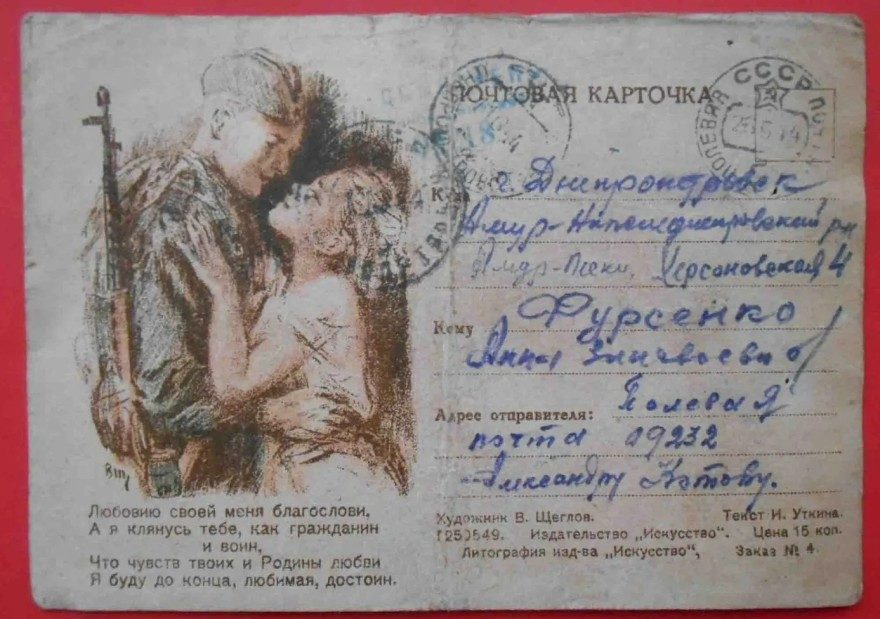 ПОЧТОВАЯ КАРТОЧКА
СССР
ПОЛЕВАЯ ПОЧТА
Куда г. Днипропетровск
Амур-Нижнеднепровский рн
Херсоновская 4
Кому Фурсенко
Анна
Адрес отправителя: Полевая
почта 19232
Александру Котову.
Вщ
Любовию своей меня благослови,
А я клянусь тебе, как гражданин
и воин,
Что чувств твоих и Родины любви
Я буду до конца, любимая, достоин.
Художник В. Щеглов. Текст И. Уткина.
Издательство „Искусство". Цена 15 коп.
Литография изд-ва „Искусство", Заказ № 4.